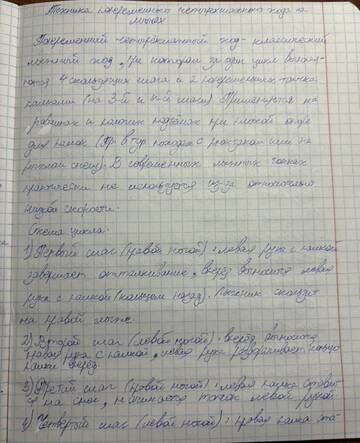 Техника попеременного четырехшажного хода на
лыжах
Попеременный четырехшажный ход - классический
лыжный ход, при котором за один цикл выполня-
ются 4 скользящих шага и 2 попеременных толчка
палками (на 3-й и 4-й шаги). Применяется на
равнинах и пологих подъемах при плохой опоре
для палок (Пр. в тур. походах с рюкзаком или на
рыхлом снегу). В современных лыжных гонках
практически не используется из-за относительно
низкой скорости.
Схема цикла.
1) Первый шаг (правой ногой): левая рука с палкой
завершает отталкивание, вперед выносится левая
рука с палкой (кольцом назад). Лыжник скользит
на правой лыже.
2) Второй шаг (левой ногой): вперед выносится
правая рука с палкой, левая рука разворачивает кольцо
палки вперед.
3) Третий шаг (правой ногой): левая палка ставит
ся на снег, начинается толчок левой рукой
4) Четвертый шаг (левой ногой): правая палка ста-